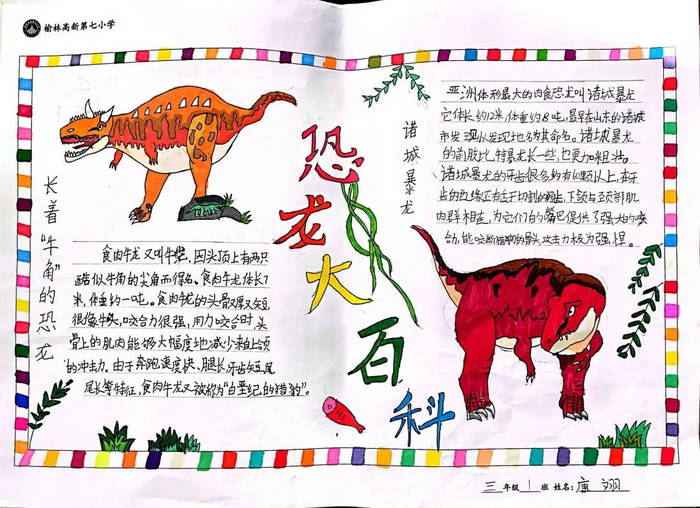 榆林高新第七小学
恐龙大百科
长着“牛角”的恐龙
食肉牛龙又叫牛龙，因头顶上有两只
酷似牛角的尖角而得名。食肉牛龙体长7
米，体重约一吨。食肉牛龙的头骨又厚又短
很像牛头，咬合力很强，用力咬合时，头
骨上的肌肉能够大幅度地减少来自上颌
的冲击力。由于奔跑速度快、腿长牙齿短、尾
尾长等特征，食肉牛龙又被称为“白垩纪的猎豹”。
诸城暴龙
亚洲体形最大的肉食恐龙叫诸城暴龙
它体长约12米，体重约8吨，最早在山东的诸城
市发现以发现地为其命名。诸城暴龙
的前肢比特暴龙长一些，也更加粗壮。
诸城暴龙的牙齿很多约有如颗以上，在牙
齿的边缘还有左于切割的锯齿，下颌与颈部肌
肉群相连，为它们的嘴巴提供了强大的咬
合力，能咬断猎物的骨头，攻击力极为强悍。
三年级1班 姓名：康翊